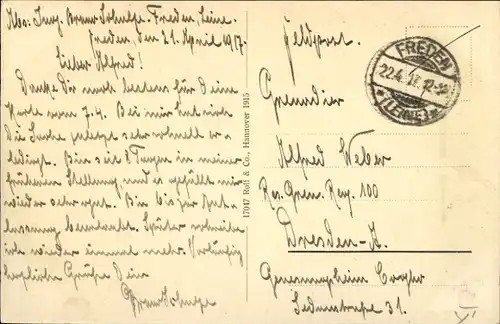 Abs: Jng. Bruno Schulze. Freden, Leine.
Freden, den 21. April 1917.
Lieber Alfred!
Danke Dir noch bestens für Deine
Karte vom 7.4. Bei mir hat sich
die Sache zuletzt sehr schnell er-
ledigt. Bin seit 8 Tagen in meiner
früheren Stellung, und es gefällt mir
wieder sehr gut. Bin bis zur Ent-
lassung beurlaubt. Später schreibe
ich wieder einmal mehr. Vorläufig
herzliche Grüße Dein
Bruno Schulze
17047 Roß & Co., Hannover 1915
Feldpost.
FREDEN
22.4.17. 12-
(LEINE)
Grenadier
Alfred Weber
Res. Gren. Reg. 100
Dresden-A.
Genesungsheim
31.